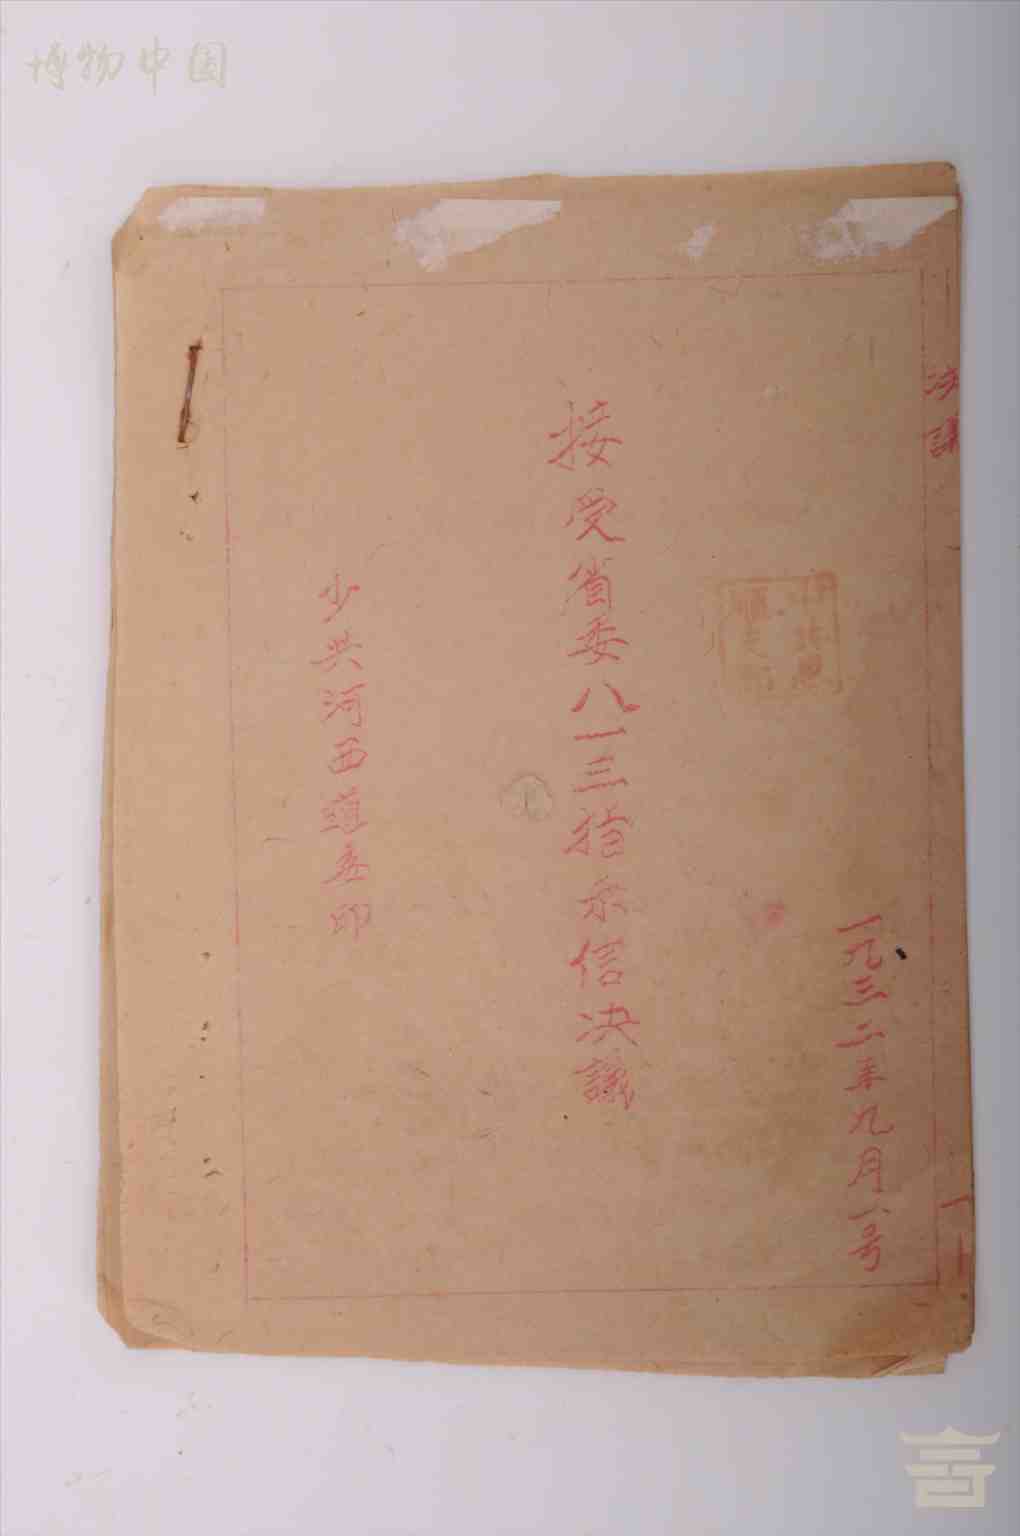 博物中国
决議
一
一九三二年九月八号
接受省委八一三指示信决議
少共河西道委印